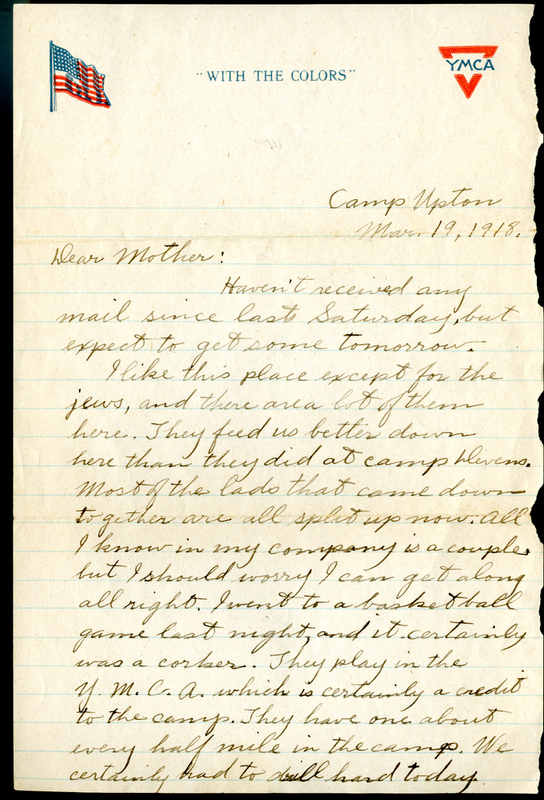 "WITH THE COLORS"
YMCA
Camp Upton
Mar. 19, 1918.
Dear Mother:
Haven't received any
mail since last Saturday, but
expect to get some tomorrow.
I like this place except for the
jews, and there are a lot of them
here. They feed us better down
here than they did at camp Devens.
Most of the lads that came down
together are all split up now. All
I know in my company is a couple.
but I should worry I can get along
all right. I went to a basket ball
game last night, and it certainly
was a corker. They play in the
Y. M. C. A. which is certainly a credit
to the camp. They have one about
every half mile in the camp. We
certainly had to drill hard today.